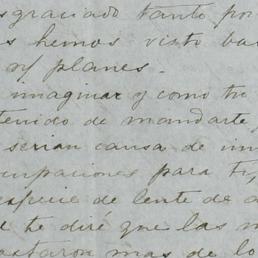 sgraciado tanto por
s hemos visto ba
y planes.
imaginar y como tu
tenido de mandarte
serian causa de in
cupaciones para ti,
especie de lente de a
te diré que las m
astaron mas de lo